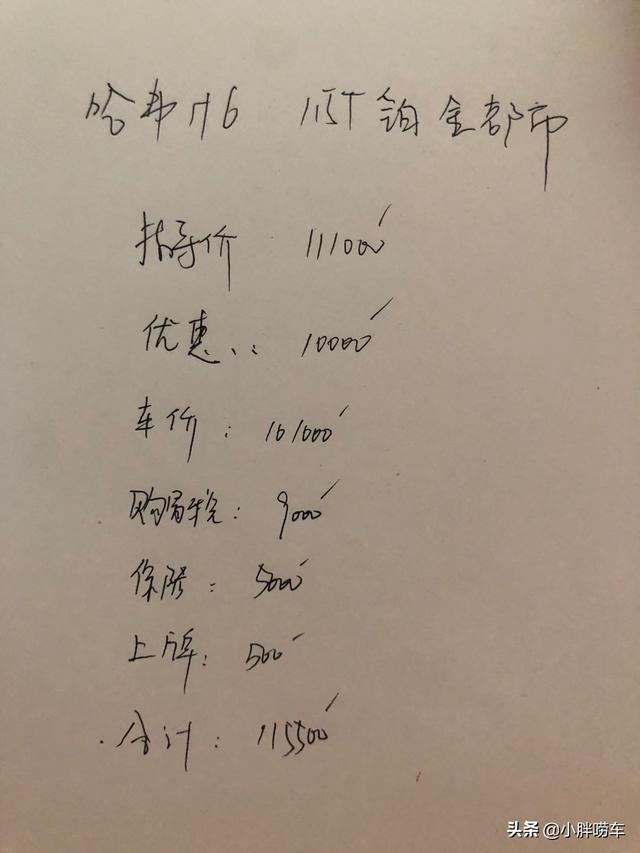 哈弗H6 1.5T 铂金都市
指导价 111000
优惠: 10000
车价: 101000
购置税: 9000
保险: 5000
上牌: 500
合计: 115500
头条 @小胖唠车